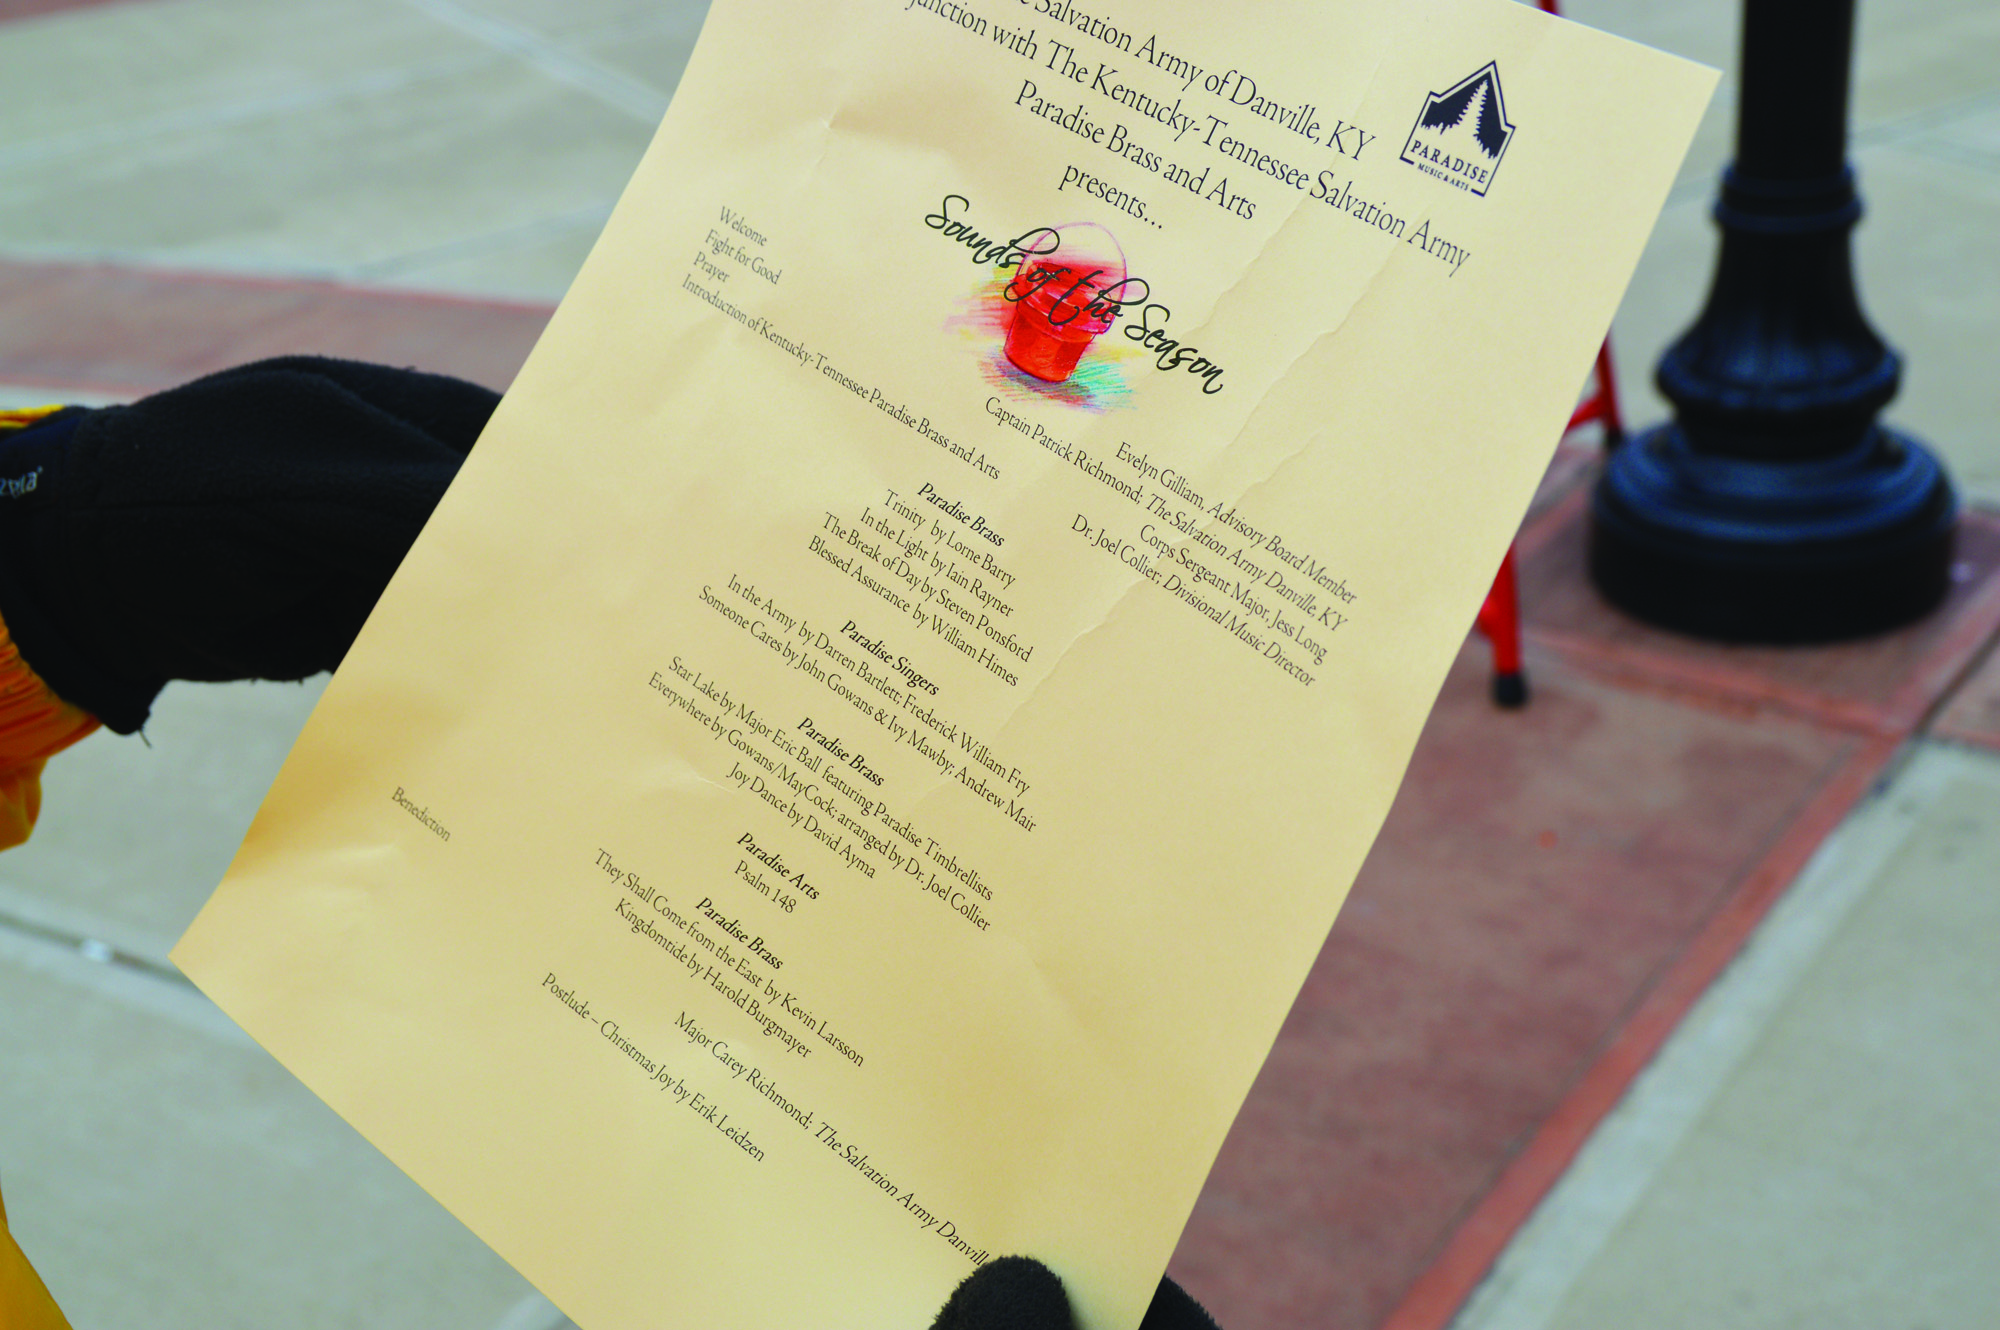 Salvation Army of Danville, KY
junction with The Kentucky-Tennessee Salvation Army
Paradise Brass and Arts
presents...
PARADISE
MUSIC & ARTS
Sounds of the Season
Welcome
Evelyn Gilliam, Advisory Board Member
Fight for Good
Captain Patrick Richmond; The Salvation Army Danville, KY
Prayer
Corps Sergeant Major, Jess Long
Introduction of Kentucky-Tennessee Paradise Brass and Arts
Dr. Joel Collier; Divisional Music Director
Paradise Brass
Trinity by Lorne Barry
In the Light by Iain Rayner
The Break of Day by Steven Ponsford
Blessed Assurance by William Himes
Paradise Singers
In the Army by Darren Bartlett; Frederick William Fry
Someone Cares by John Gowans & Ivy Mawby; Andrew Mair
Paradise Brass
Star Lake by Major Eric Ball featuring Paradise Timbrellists
Everywhere by Gowans/MayCock; arranged by Dr. Joel Collier
Joy Dance by David Ayma
Paradise Arts
Psalm 148
Paradise Brass
They Shall Come from the East by Kevin Larsson
Kingdomtide by Harold Burgmayer
Benediction
Major Carey Richmond; The Salvation Army Danvill
Postlude – Christmas Joy by Erik Leidzen